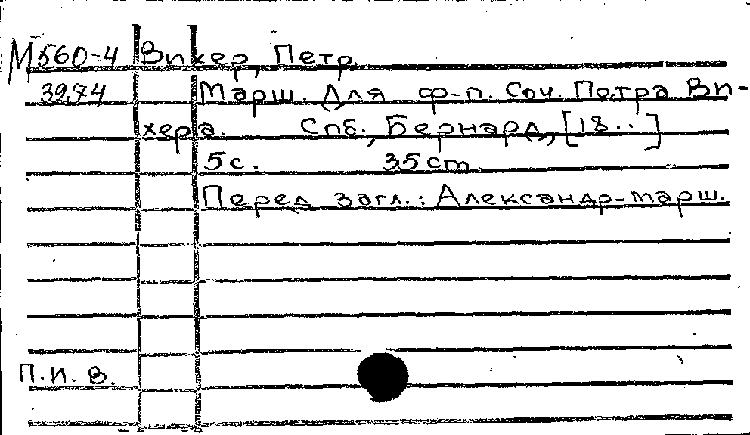 М560-4 Вихер, Петр.
39,74 Марш. Для ф-п. Соч. Петра Ви-
хера. Спб., Бернард, [18..]
5с. 35cm
Перед загл.: Александр-марш.
П.И.В.